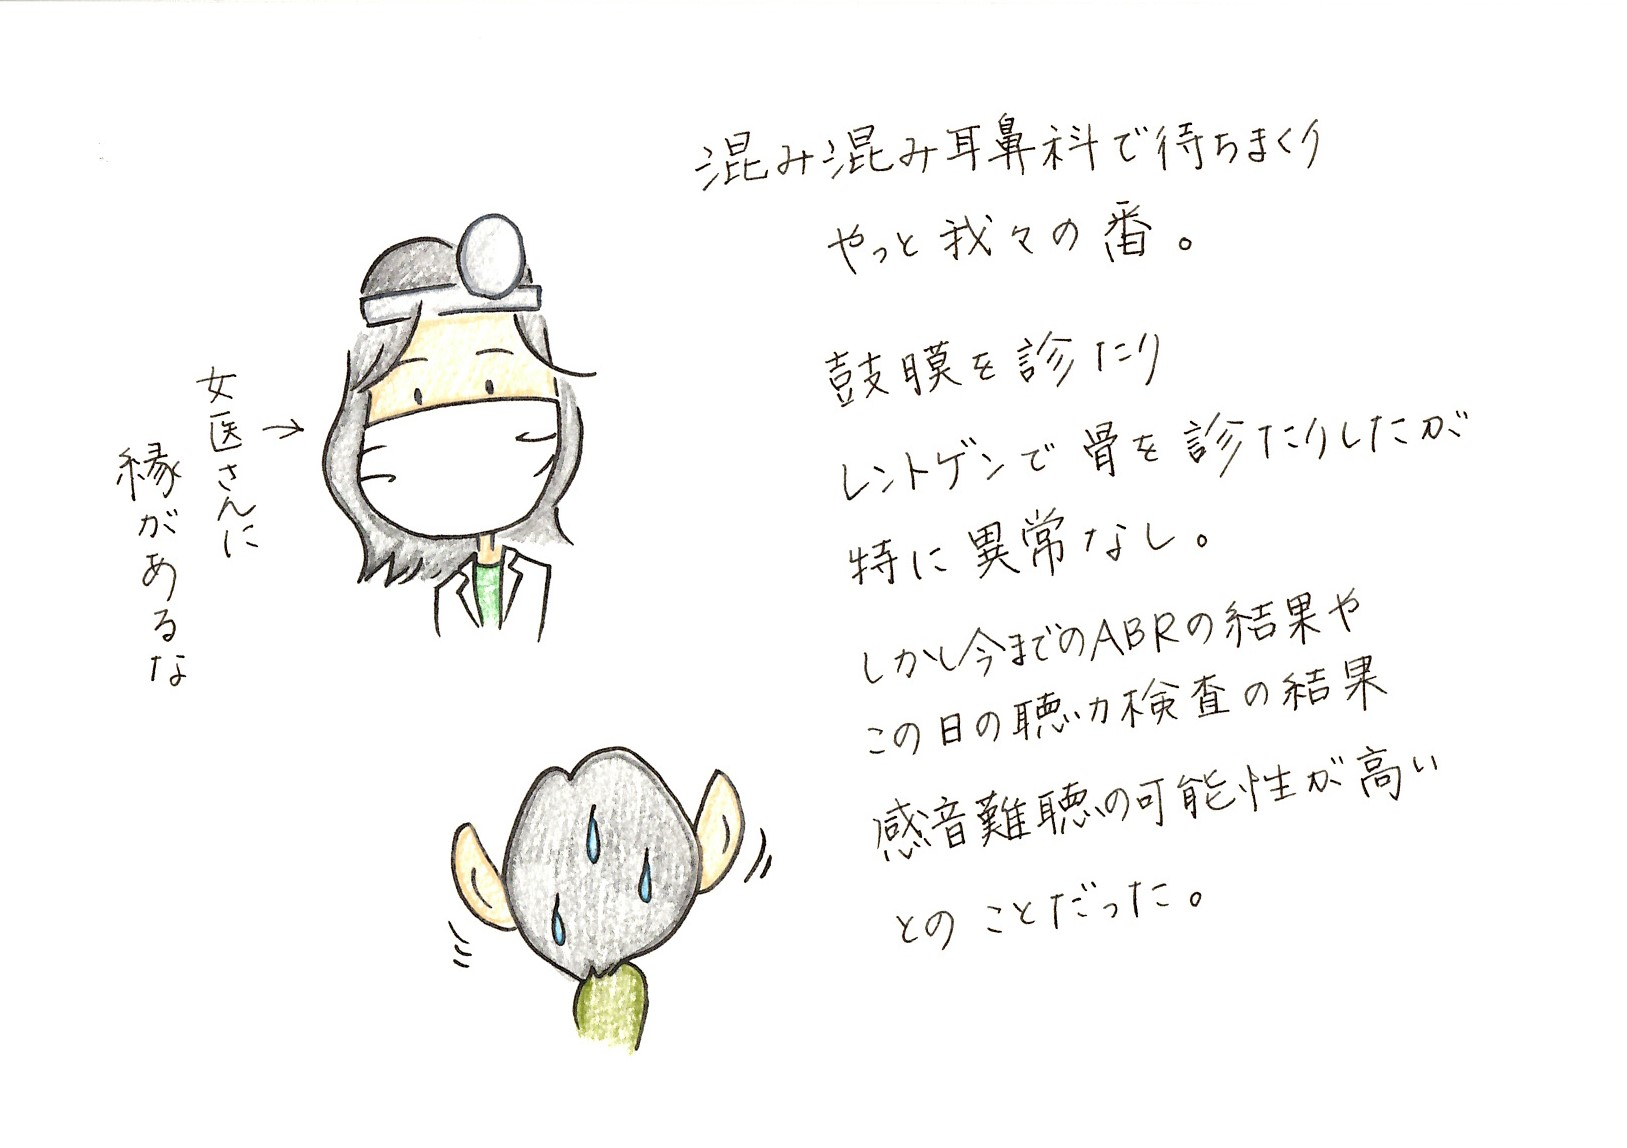 混み混み耳鼻科で待ちまくり
やっと我々の番。
鼓膜を診たり
レントゲンで骨を診たりしたが
特に異常なし。
しかし今までのABRの結果や
この日の聴力検査の結果
感音難聴の可能性が高い
とのことだった。
女医さんに
縁があるな